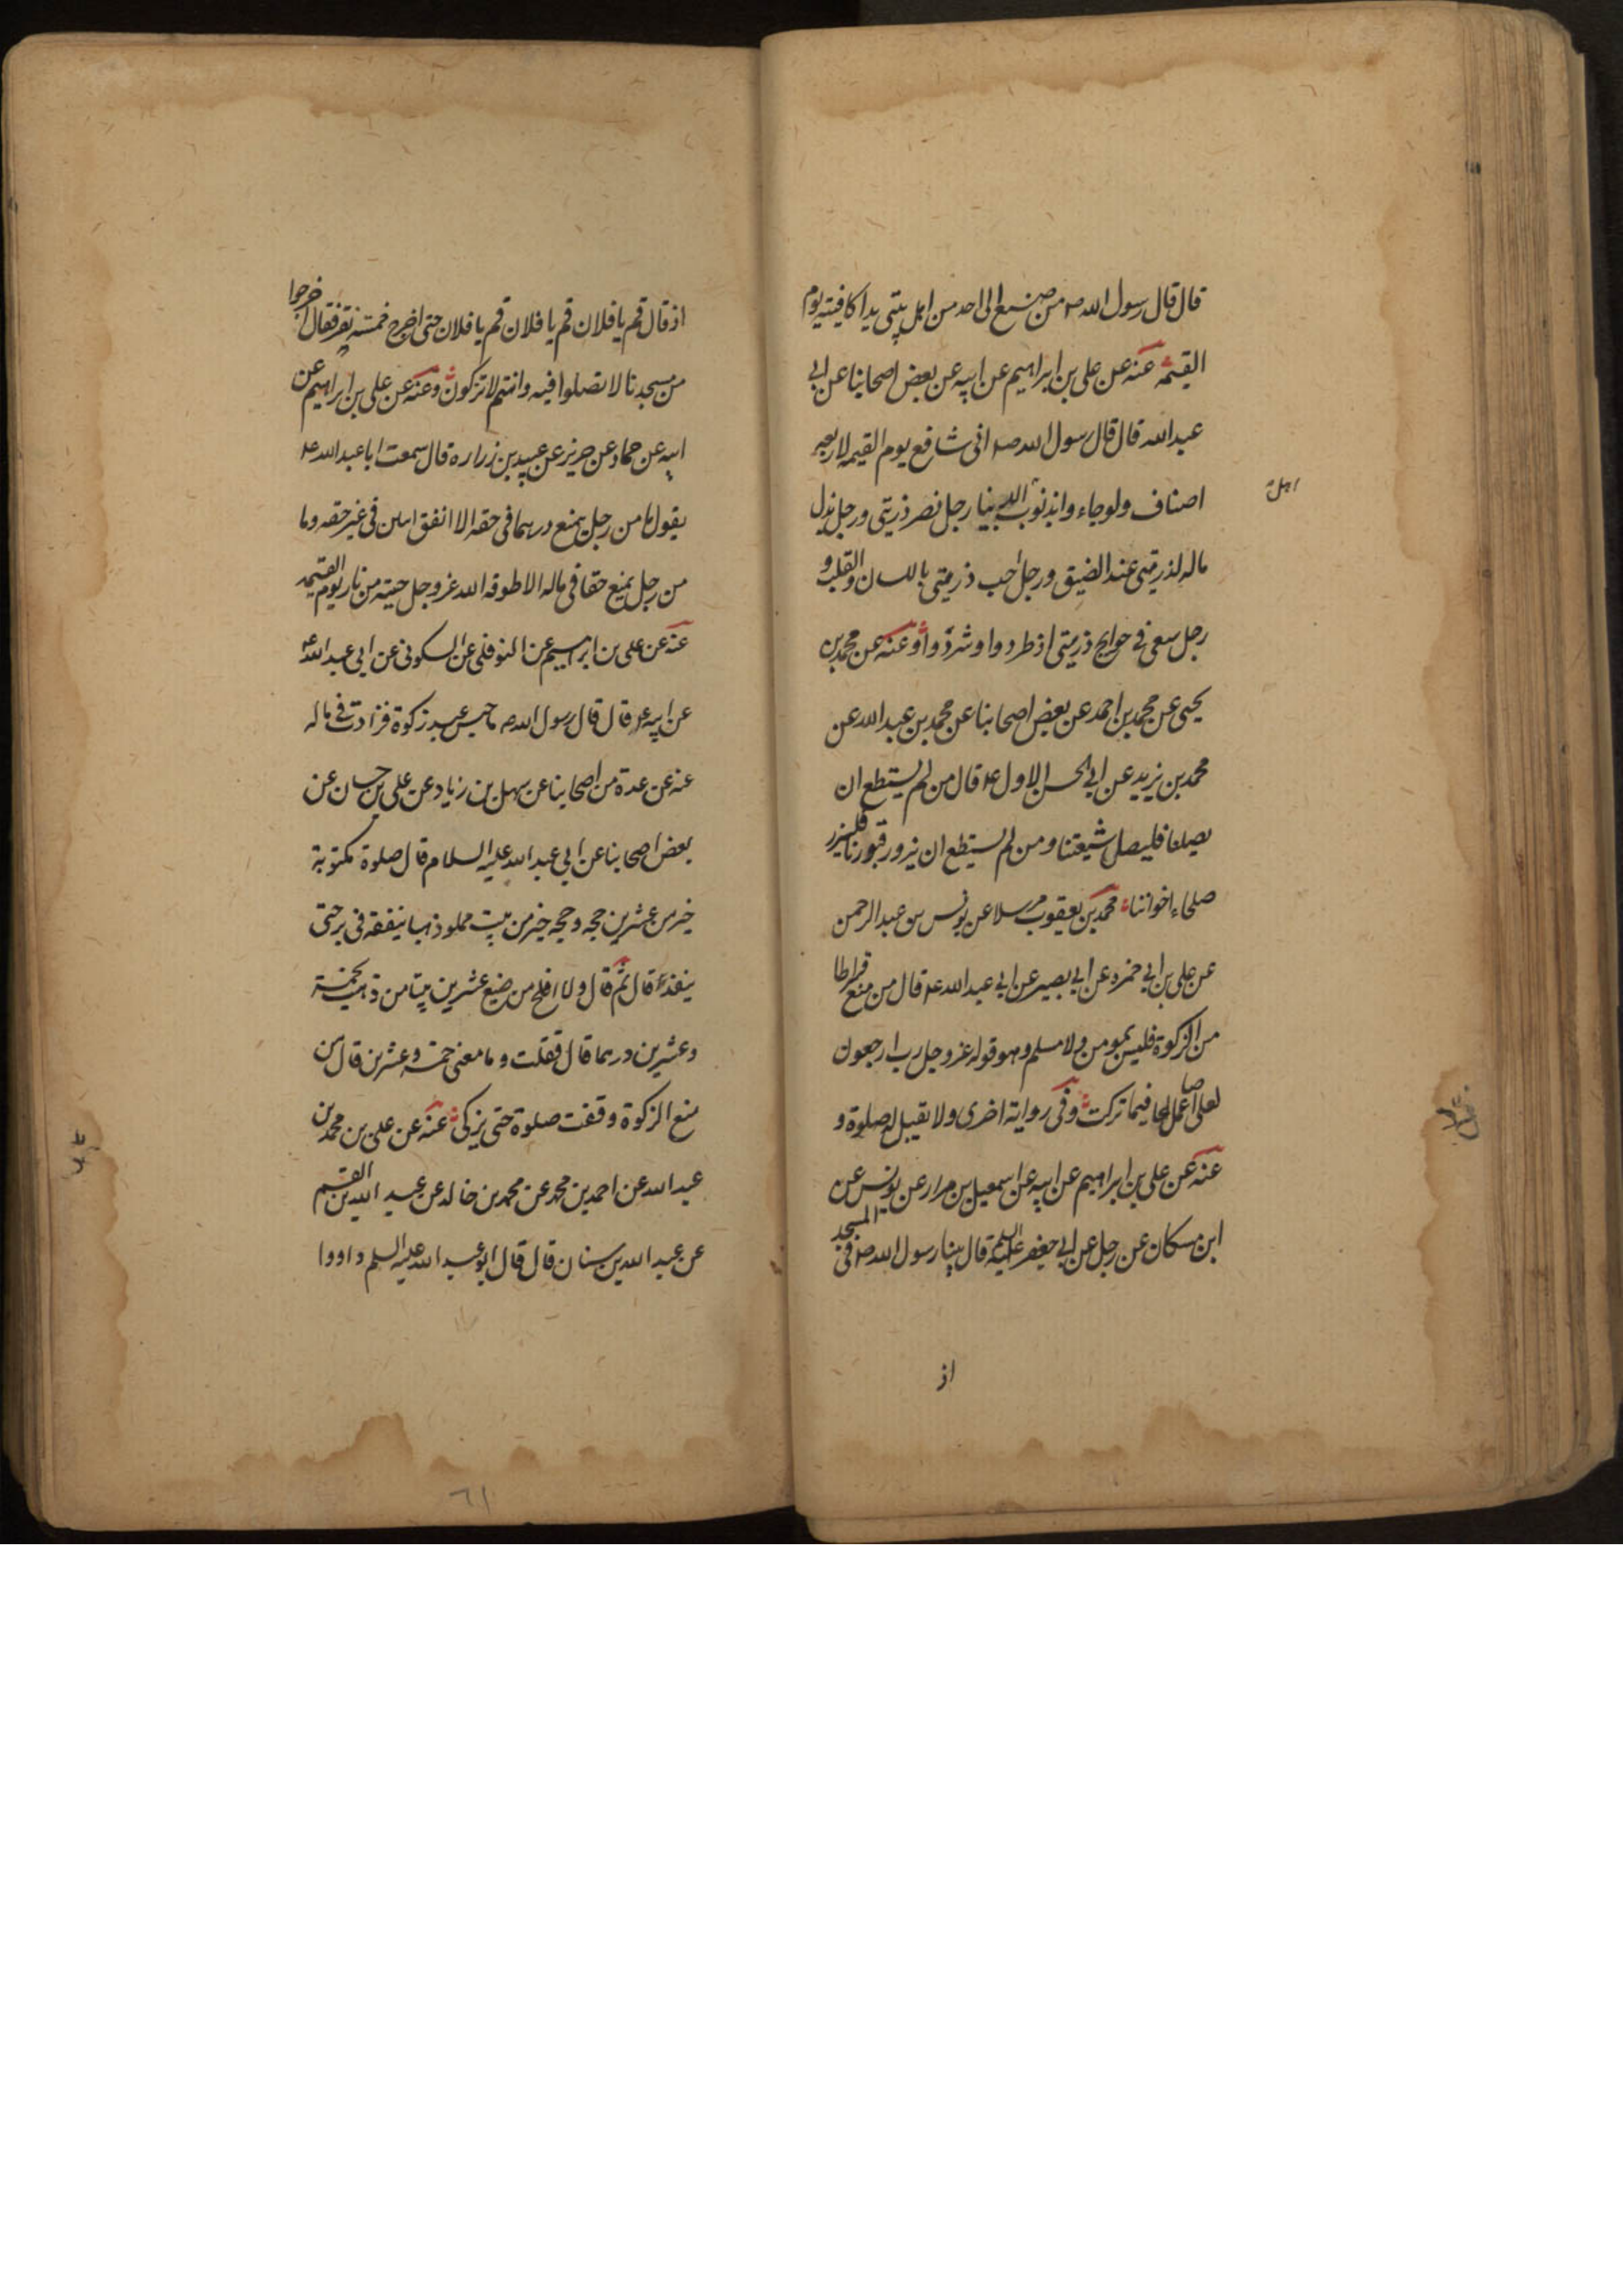 قال قال رسول الله ص من صنع الى احد من اهل بيتى يدا كافيته يوم
القيمة عنه عن على بن ابراهيم عن ابيه عن بعض اصحابنا عن ابى
عبدالله قال قال رسول الله ص انى شافع يوم القيمه لاربعه
اصناف ولو جاءوا بذنوب اهل الدنيا رجل نصر ذريتى ورجل بذل
ماله لذريتى عند الضيق ورجل احب ذريتى باللسان والقلب و
رجل سعى فى حوايج ذريتى اذ طردوا وشردوا وعنه عن محمد بن
يحيى عن محمد بن احمد عن بعض اصحابنا عن محمد بن عبدالله عن
محمد بن يزيد عن ابى الحسن الاول ع قال من لم يستطع ان
يصلنا فليصل شيعتنا ومن لم يستطع ان يزور قبورنا فليزر
صلحاء اخواننا محمد بن يعقوب مرسلا عن يونس بن عبدالرحمن
عن على بن ابى حمزه عن ابى بصير عن ابى عبدالله ع قال من منع قيراطا
من الزكوة فليس بمومن ولا مسلم وهو قوله عز وجل رب ارجعون
لعلى اعمل صالحا فيما تركت وفى رواية اخرى ولا تقبل له صلوة و
عنه عن على بن ابراهيم عن ابيه عن اسمعيل بن مرار عن يونس عن
ابن مسكان عن رجل عن ابى جعفر عليه السلم قال بينا رسول الله ص فى المسجد
اذ
اذ قال قم يا فلان قم يا فلان قم يا فلان حتى اخرج خمسة نفر فقال اخرجوا
من مسجدنا لا تصلوا فيه وانتم لا تزكون وعنه عن على بن ابراهيم عن
ابيه عن حماد عن حريز عن عبيد بن زراره قال سمعت ابا عبدالله ع
يقول ما من رجل يمنع درهما فى حقه الا انفق اثنين فى غير حقه وما
من رجل يمنع حقا فى ماله الا طوقه الله عز وجل حية من نار يوم القيمه
عنه عن على بن ابراهيم عن النوفلى عن السكونى عن ابى عبدالله ع
عن ابيه ع قال قال رسول الله ص ما حبس عبد زكوة فزادت فى ماله
عنه عن عدة من اصحابنا عن سهل بن زياد عن على بن حسان عن
بعض اصحابنا عن ابى عبدالله عليه السلام قال صلوة مكتوبة
خير من عشرين حجه وحجه خير من بيت مملو ذهبا ينفقه فى بر حتى
ينفذ قال ثم قال ولا افلح من ضيع عشرين بيتا من ذهب بخمسة
وعشرين درهما قال فقلت وما معنى خمسة وعشرين قال من
منع الزكوة وقفت صلوة حتى يزكى عنه عن على بن محمد بن
عبدالله عن احمد بن محمد عن محمد بن خالد عن عبد الله بن القسم
عن عبدالله بن سنان قال قال ابو عبدالله عليه السلم داووا
٦١